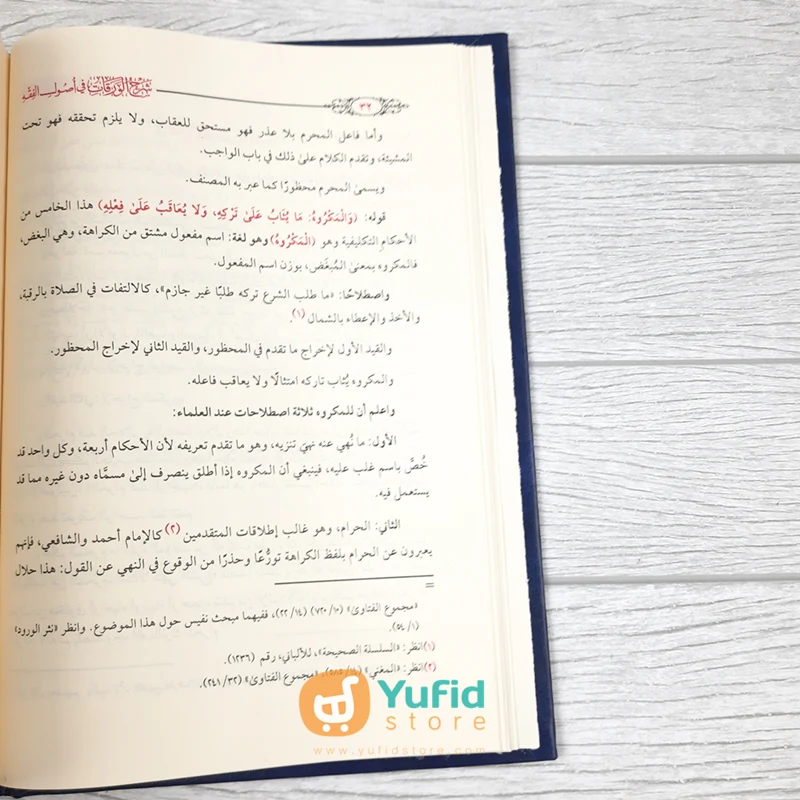 شرح الورقات في أصول الفقه
٣٦
وأما فاعل المحرم بلا عذر فهو مستحق للعقاب، ولا يلزم تحققه فهو تحت
المشيئة، وتقدم الكلام علىٰ ذلك في باب الواجب.
ويسمىٰ المحرم محظورًا كما عبر به المصنف.
قوله: (وَالْمَكْرُوهُ: مَا يُثَابُ عَلَىٰ تَرْكِهِ، وَلَا يُعَاقَبُ عَلَىٰ فِعْلِهِ) هذا الخامس من
الأحكام التكليفية وهو (الْمَكْرُوهُ) وهو لغة: اسم مفعول مشتق من الكراهة، وهي البغض،
فالمكروه بمعنىٰ المُبغَض، بوزن اسم المفعول.
واصطلاحًا: «ما طلب الشرع تركه طلبًا غير جازم»، كالالتفات في الصلاة بالرقبة،
والأخذ والإعطاء بالشمال (١).
والقيد الأول لإخراج ما تقدم في المحظور، والقيد الثاني لإخراج المحظور.
والمكروه يُثاب تاركه امتثالًا ولا يعاقب فاعله.
واعلم أن للمكروه ثلاثة اصطلاحات عند العلماء:
الأول: ما نُهي عنه نهيَ تنزيه، وهو ما تقدم تعريفه لأن الأحكام أربعة، وكل واحد قد
خُصَّ باسم غلب عليه، فينبغي أن المكروه إذا أطلق ينصرف إلىٰ مسمَّاه دون غيره مما قد
يستعمل فيه.
الثاني: الحرام، وهو غالب إطلاقات المتقدمين (٢) كالإمام أحمد والشافعي، فإنهم
يعبرون عن الحرام بلفظ الكراهة تورُّعًا وحذرًا من الوقوع في النهي عن القول: هذا حلال
=
«مجموع الفتاوىٰ» (١٠/ ٧٢٠) (١٤/ ٢٢)، ففيهما مبحث نفيس حول هذا الموضوع. وانظر «نثر الورود»
(١/ ٥٤).
(١) انظر: «السلسلة الصحيحة»، للألباني، رقم (١٢٣٦).
(٢) انظر: «المغني» «مجموع الفتاوىٰ» (٣٢/ ٢٤١).
Yufid
store
www.yufidstore.com